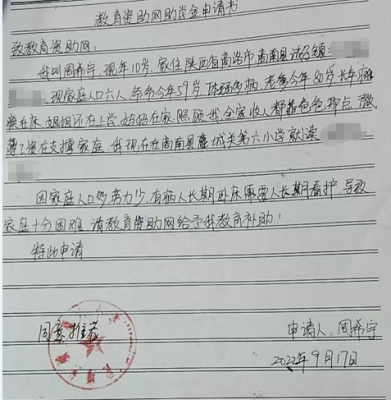 教育资助网助学金申请书
致教育资助网:
我叫周希宁,现年10岁,家住陕西省商洛市商南县试马镇
现家庭人口六人,爷爷今年59岁,体弱多病,老爹今年80岁长年瘫
痪在床,姐姐还在上学,妈妈在家照顾我,全家收入都靠爸爸那点微
薄工资在支撑家庭,我现在在商南县城关第六小学就读
因家庭人口多劳力少,有病人长期卧床需要人长期看护,导致
家庭十分困难,请教育资助网给予我教育补助!
特此申请
同意推荐
申请人:周希宁
2022年9月17日